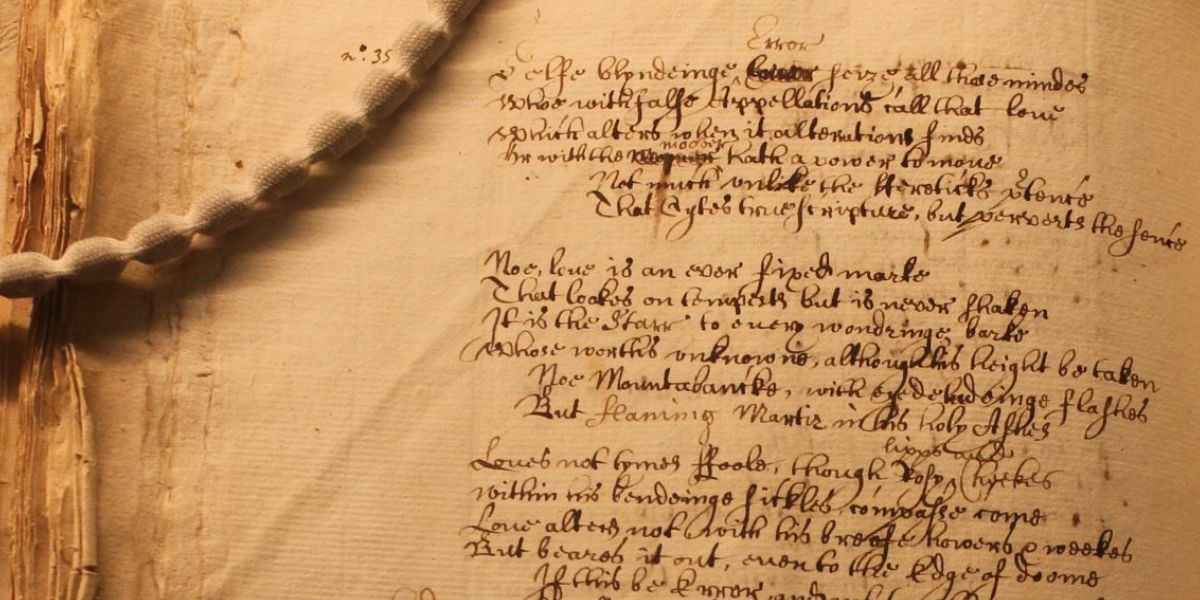 n.º 35
Error
Selfe blyndeinge seize all those mindes
Whoe with false Appellations call that love
Which alters when it alterations finds
Or with the mover hath a power to move
Not much unlike the Heretickes ptence
That Cytes true scripture, but perverts the sence
Noe, love is an ever fixed marke
That lookes on tempests but is never shaken
It is the Starr to every wondringe barke
Whose worths unknowne, although his height be taken
Noe Mountabancke, with eyedeludeinge flashes
But flaming Martir in his holy Ashes
lipps and
Loves not tymes Foole, though Rosy Cheekes
within his bendeinge sickles compasse come
Love alters not with his breefe howers & weekes
But beares it out, even to the Edge of doome
If this be Error and not